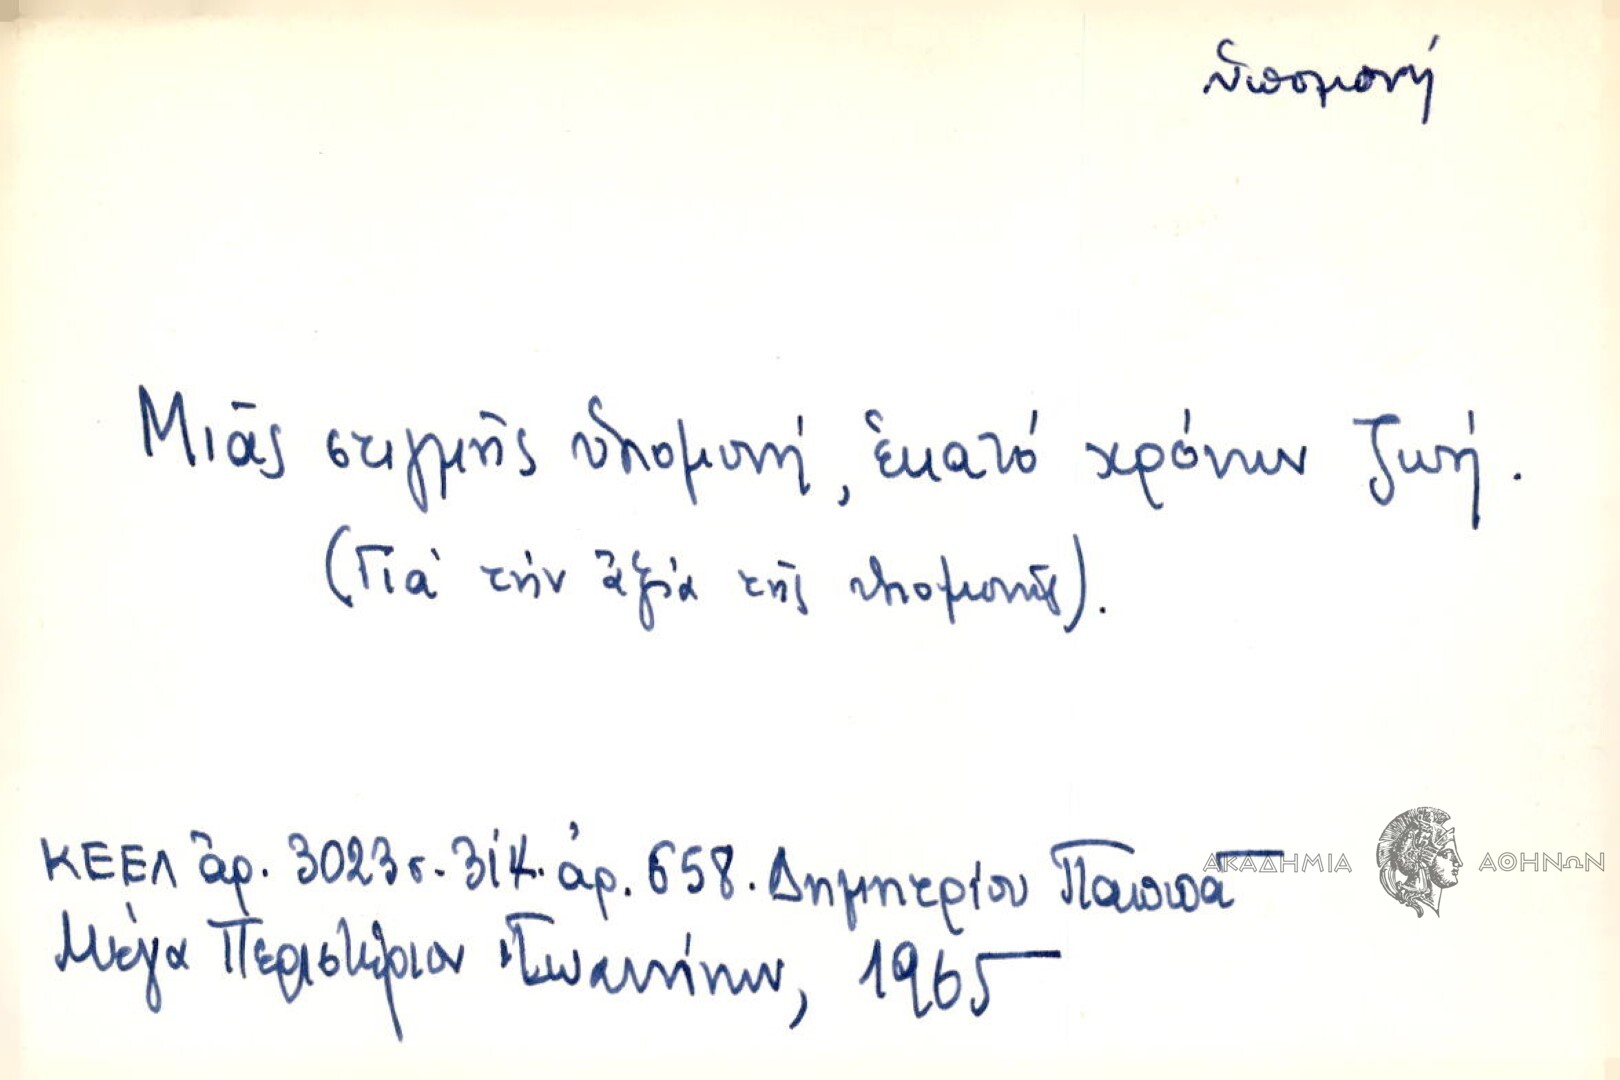 ὑπομονή
Μιᾶς στιγμῆς ὑπομονή, ἑκατό χρόνων ζωή.
(Γιά τήν ἀξία τῆς ὑπομονῆς).
ΚΕΕΛ ἀρ. 3023 ἀρ. 658. Δημητρίου Παππᾶ
ΑΚΑΔΗΜΙΑ ΑΘΗΝΩΝ
Μέγα Περιστέριον Ἰωαννίνων, 1965